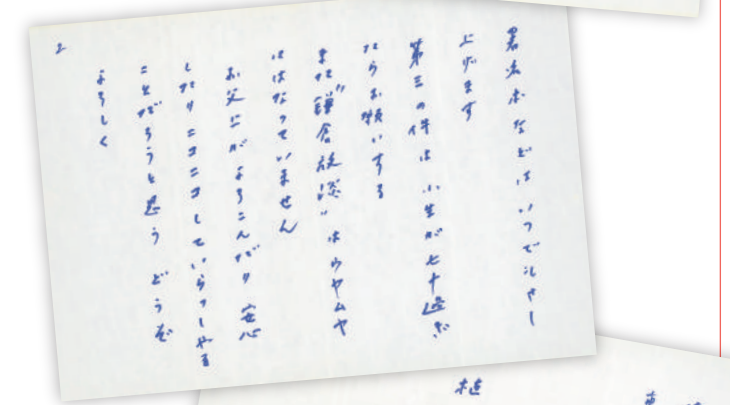 署名本などはいつでもさし
上げます
第三の件は小生が七十過ぎ
たらお願いする
まだ“鎌倉放談”はウヤムヤ
にはなっていません
お父上がよろこんだり安心
したりニコニコしていらっしやる
ことだろうと思う どうぞ
よろしく
2